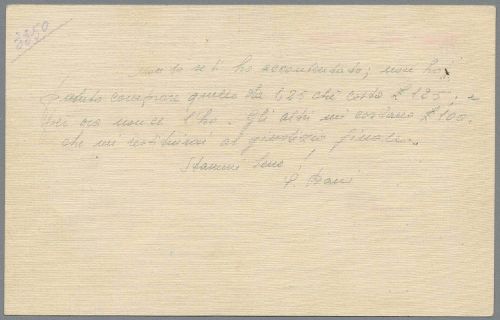 3350
non so se ti ho accontentato; non ho
potuto comprare quello da 1,25 che costa £ 125; e
per ora non ce l'ho. Gli altri mi costano £ 100.
che mi restituirai al giudizio finale.
Stammi bene!